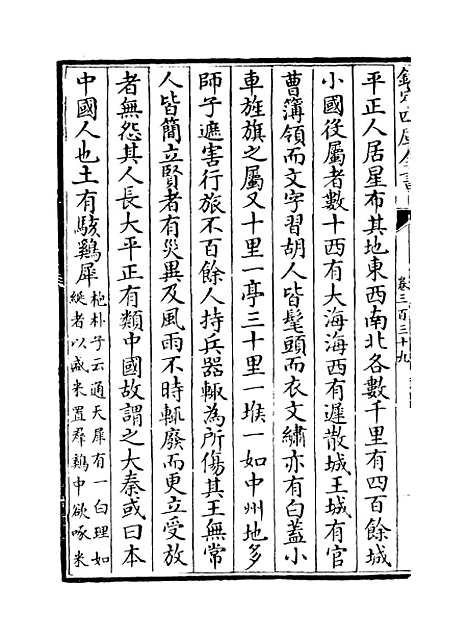 欽定四庫全書
卷三百三十九
平正人居星布其地東西南北各數千里有四百餘城
小國役屬者數十西有大海海西有遲散城王城有官
曹簿領而文字習胡人皆髦頭而衣文繡亦有白蓋小
車旌旗之屬又十里一亭三十里一堠一如中州地多
師子遮害行旅不百餘人持兵器輙為所傷其王無常
人皆簡立賢者有災異及風雨不時輒廢而更立受放
者無怨其人長大平正有類中國故謂之大秦或曰本
中國人也土有駭鷄犀
抱朴子云通天犀有一白理如
綖者以盛米置羣鷄中欲啄米